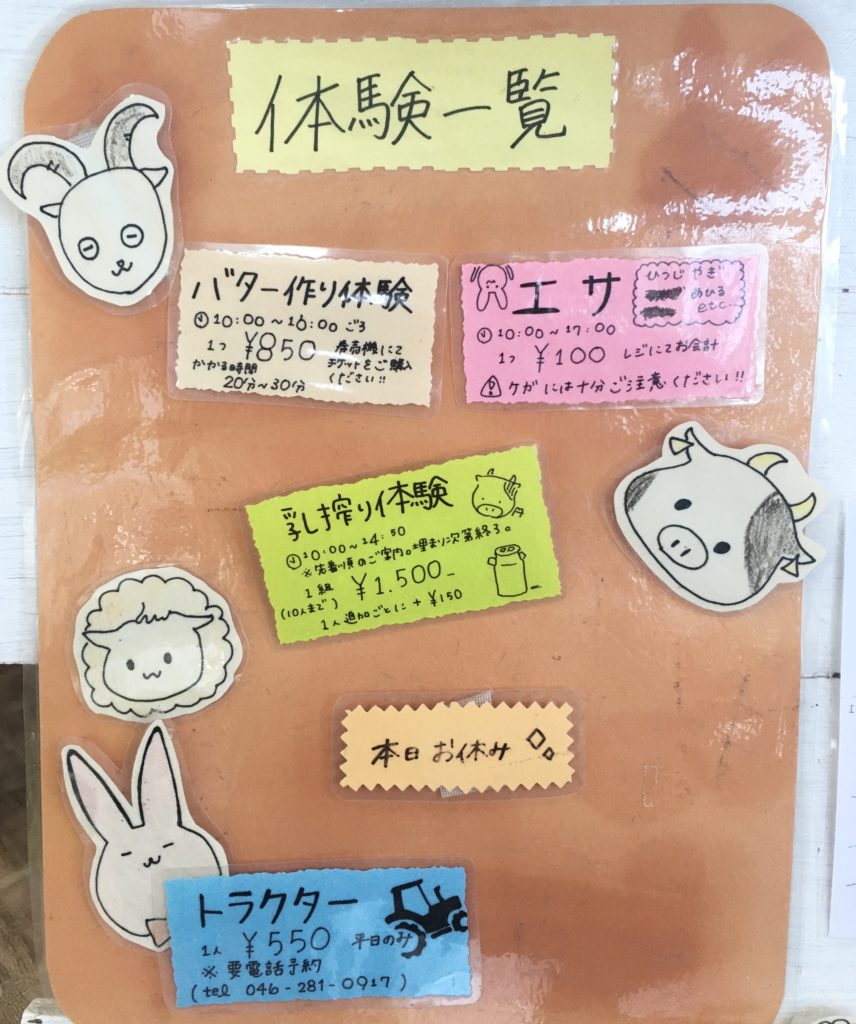 体験一覧
バター作り体験
10:00〜16:00ごろ
1つ ¥850 券売機にて
チケットをご購入
ください!!
かかる時間
20分〜30分
エサ
ひつじ やぎ
あひる
etc...
10:00〜17:00
1つ ¥100 レジにてお会計
ケガには十分ご注意ください!!
乳搾り体験
10:00〜14:50
※先着順のご案内。埋まり次第終了。
1組 ¥1.500-
(10人まで)
1人追加ごとに+¥150
本日お休み
トラクター
1人 ¥550 平日のみ
※要電話予約
(tel 046-281-0917)